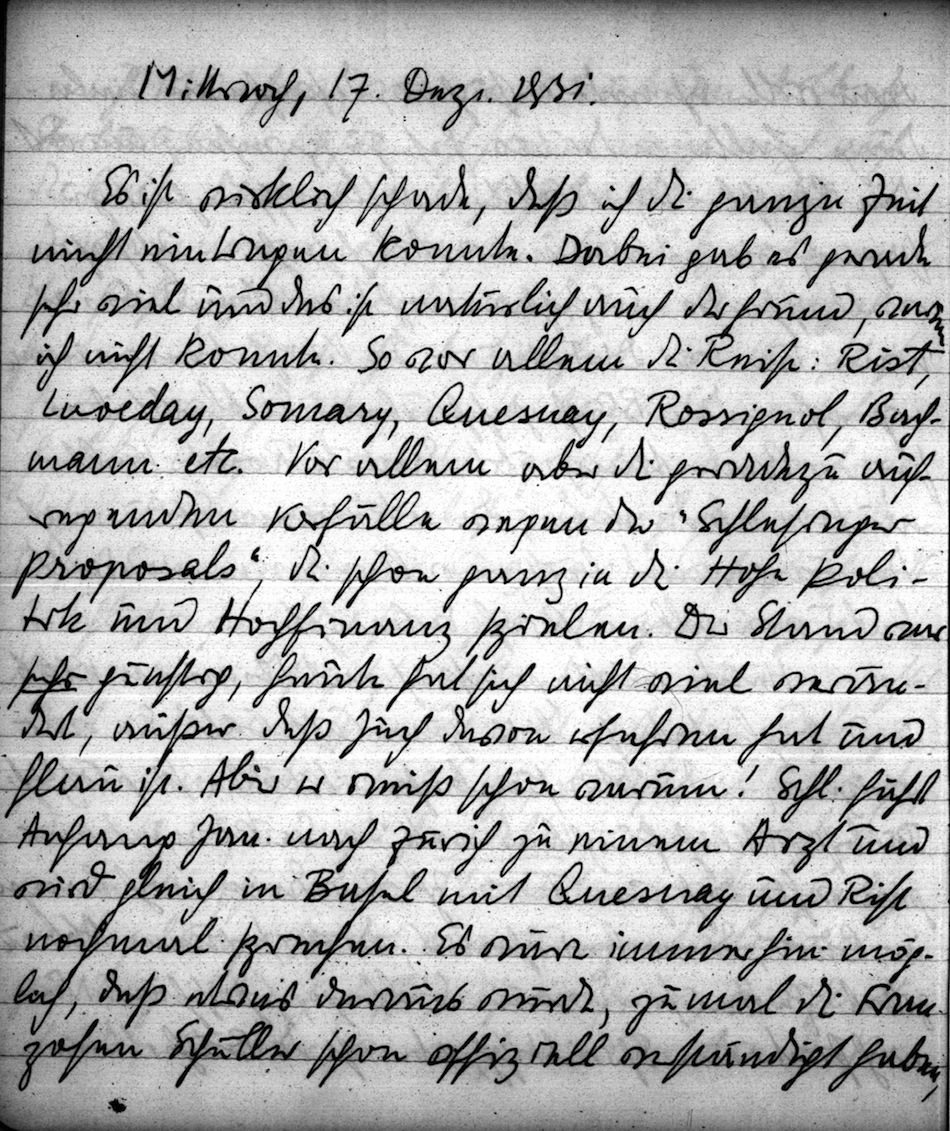 Mittwoch, 17. Dez. 1931.
Es ist wirklich schade, daß ich die ganze Zeit
nicht eintragen konnte. Dabei gab es gerade
sehr viel und das ist natürlich auch der Grund, warum
ich nicht konnte. So vor allem die Reise: Rist,
Loveday, Somary, Quesnay, Rossignol, Bach-
mann etc. Vor allem aber die geradezu auf-
regenden Vorfälle wegen der "Schlesinger
Proposals", die schon ganz in die Hohe Poli-
tik und Hochfinanz spielen. Der Stand war
sehr günstig, heute hat sich nicht viel verän-
dert, außer daß Juch davon erfahren hat und
flau ist. Aber er weiß schon warum! Schl. fährt
Anfang Jan. nach Zürich zu einem Arzt und
wird gleich in Basel mit Quesnay und Rist
nochmal sprechen. Es wäre immerhin mög-
lich, daß etwas daraus würde, zumal die Fran-
zosen Schüller schon offiziell verständigt haben,